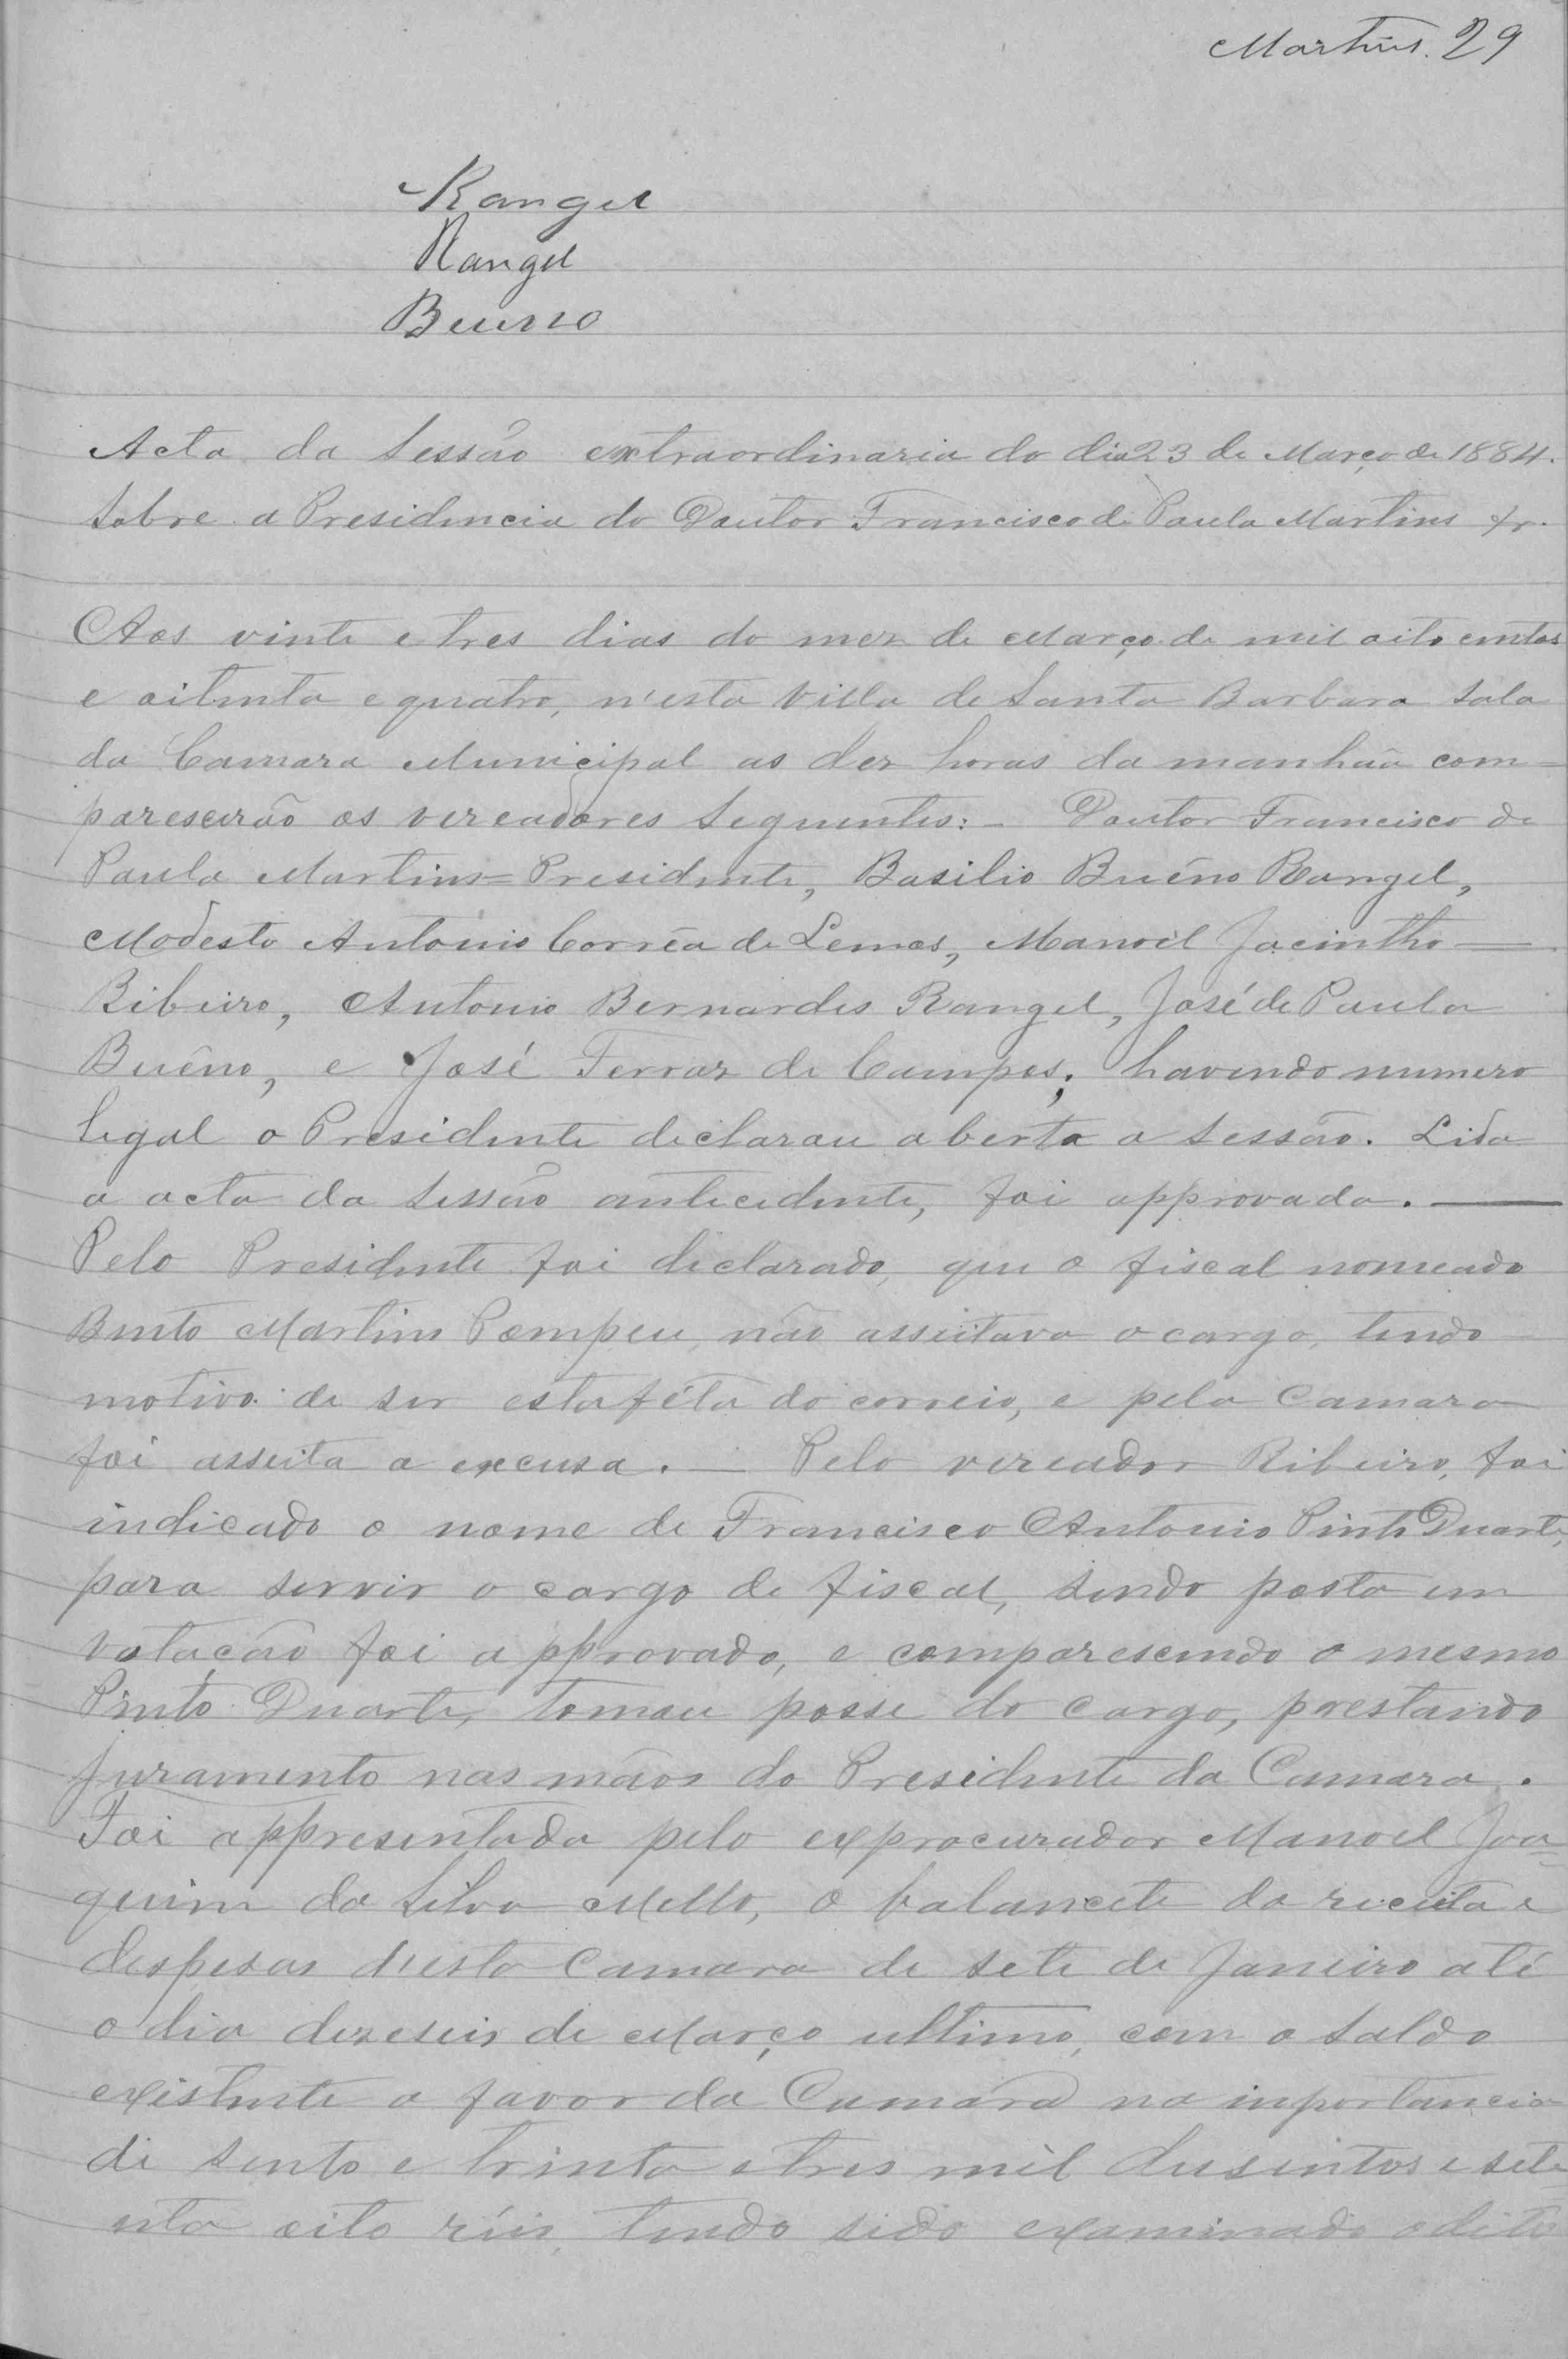 Martins. 29
Rangel
Rangel
Bueno
Acta da Sessão extraordinaria do dia 23 de Março de 1884.
Sobre a Presidencia do Doutor Francisco de Paula Martins
Aos vinte e tres dias do mez de Março de mil oito centos
e oitenta e quatro, n'esta Villa de Santa Barbara sala
da Camara Municipal as dez horas da manhãa com-
parescerão os vereadores seguentes:- Doutor Francisco de
Paula Martins= Presidente, Basilio Buêno Rangel,
Modesto Antonio Corrêa de Lemos, Manoel Jacintho —
Ribeiro, Antonio Bernardes Rangel, José de Paula
Buêno, e José Ferraz de Campos; havendo numero
legal o Presidente declarou aberta a sessão. Lida
a acta da sessão antecedente, foi approvada. —
Pelo Presidente foi declarado, que o fiscal nomeado
Bento Martins Pompeu, não asseitava o cargo, tendo
motivo de ser estaféta do correio, e pela Camara
foi asseita a excusa. — Pelo vereador Ribeiro, foi
indicado o nome de Francisco Antonio Pinto Duarte,
para servir o cargo de fiscal, sendo posto em
votação foi approvado, e comparescendo o mesmo
Pinto Duarte, tomou posse do cargo, prestando
juramento nas mãos do Presidente da Camara.
Foi appresentada pelo exprocurador Manoel Joa=
quim da Silva Mello, o balancete da receita e
despesas d'esta Camara de sete de Janeiro até
o dia dezeseis de Março ultimo, com o saldo
existente a favor da Camara na inportancia
de sento e trinta e tres mil dusentos e sete=
nta oito réis, tendo sido examinado o dito